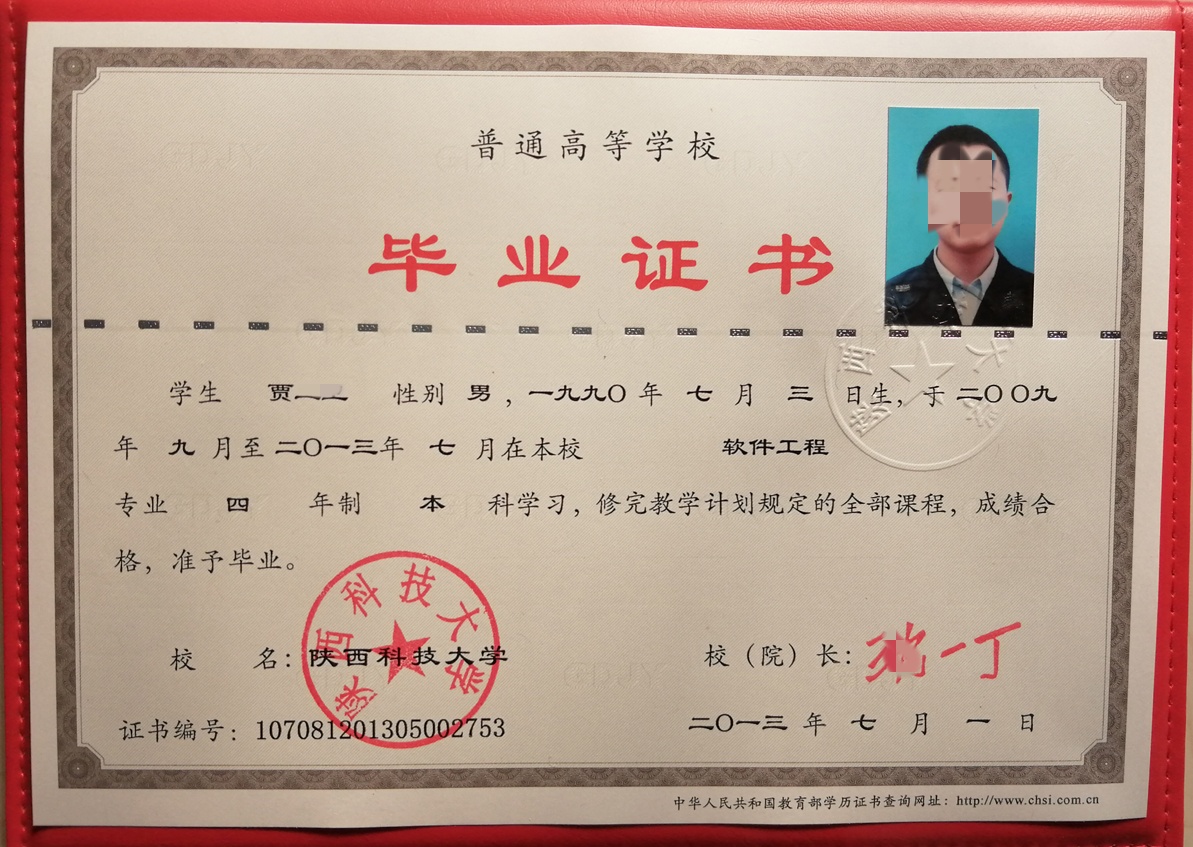 普通高等学校
毕业证书
学生 贾 性别 男，一九九〇年 七 月 三 日生，于二〇〇九
年 九 月至二〇一三年 七 月在本校 软件工程
专业 四 年制 本 科学习，修完教学计划规定的全部课程，成绩合
格，准予毕业。
陕西科技大学
校 名：陕西科技大学
校（院）长： 一丁
证书编号：107081201305002753
二〇一三 年 七 月 一 日
中华人民共和国教育部学历证书查询网址：http://www.chsi.com.cn